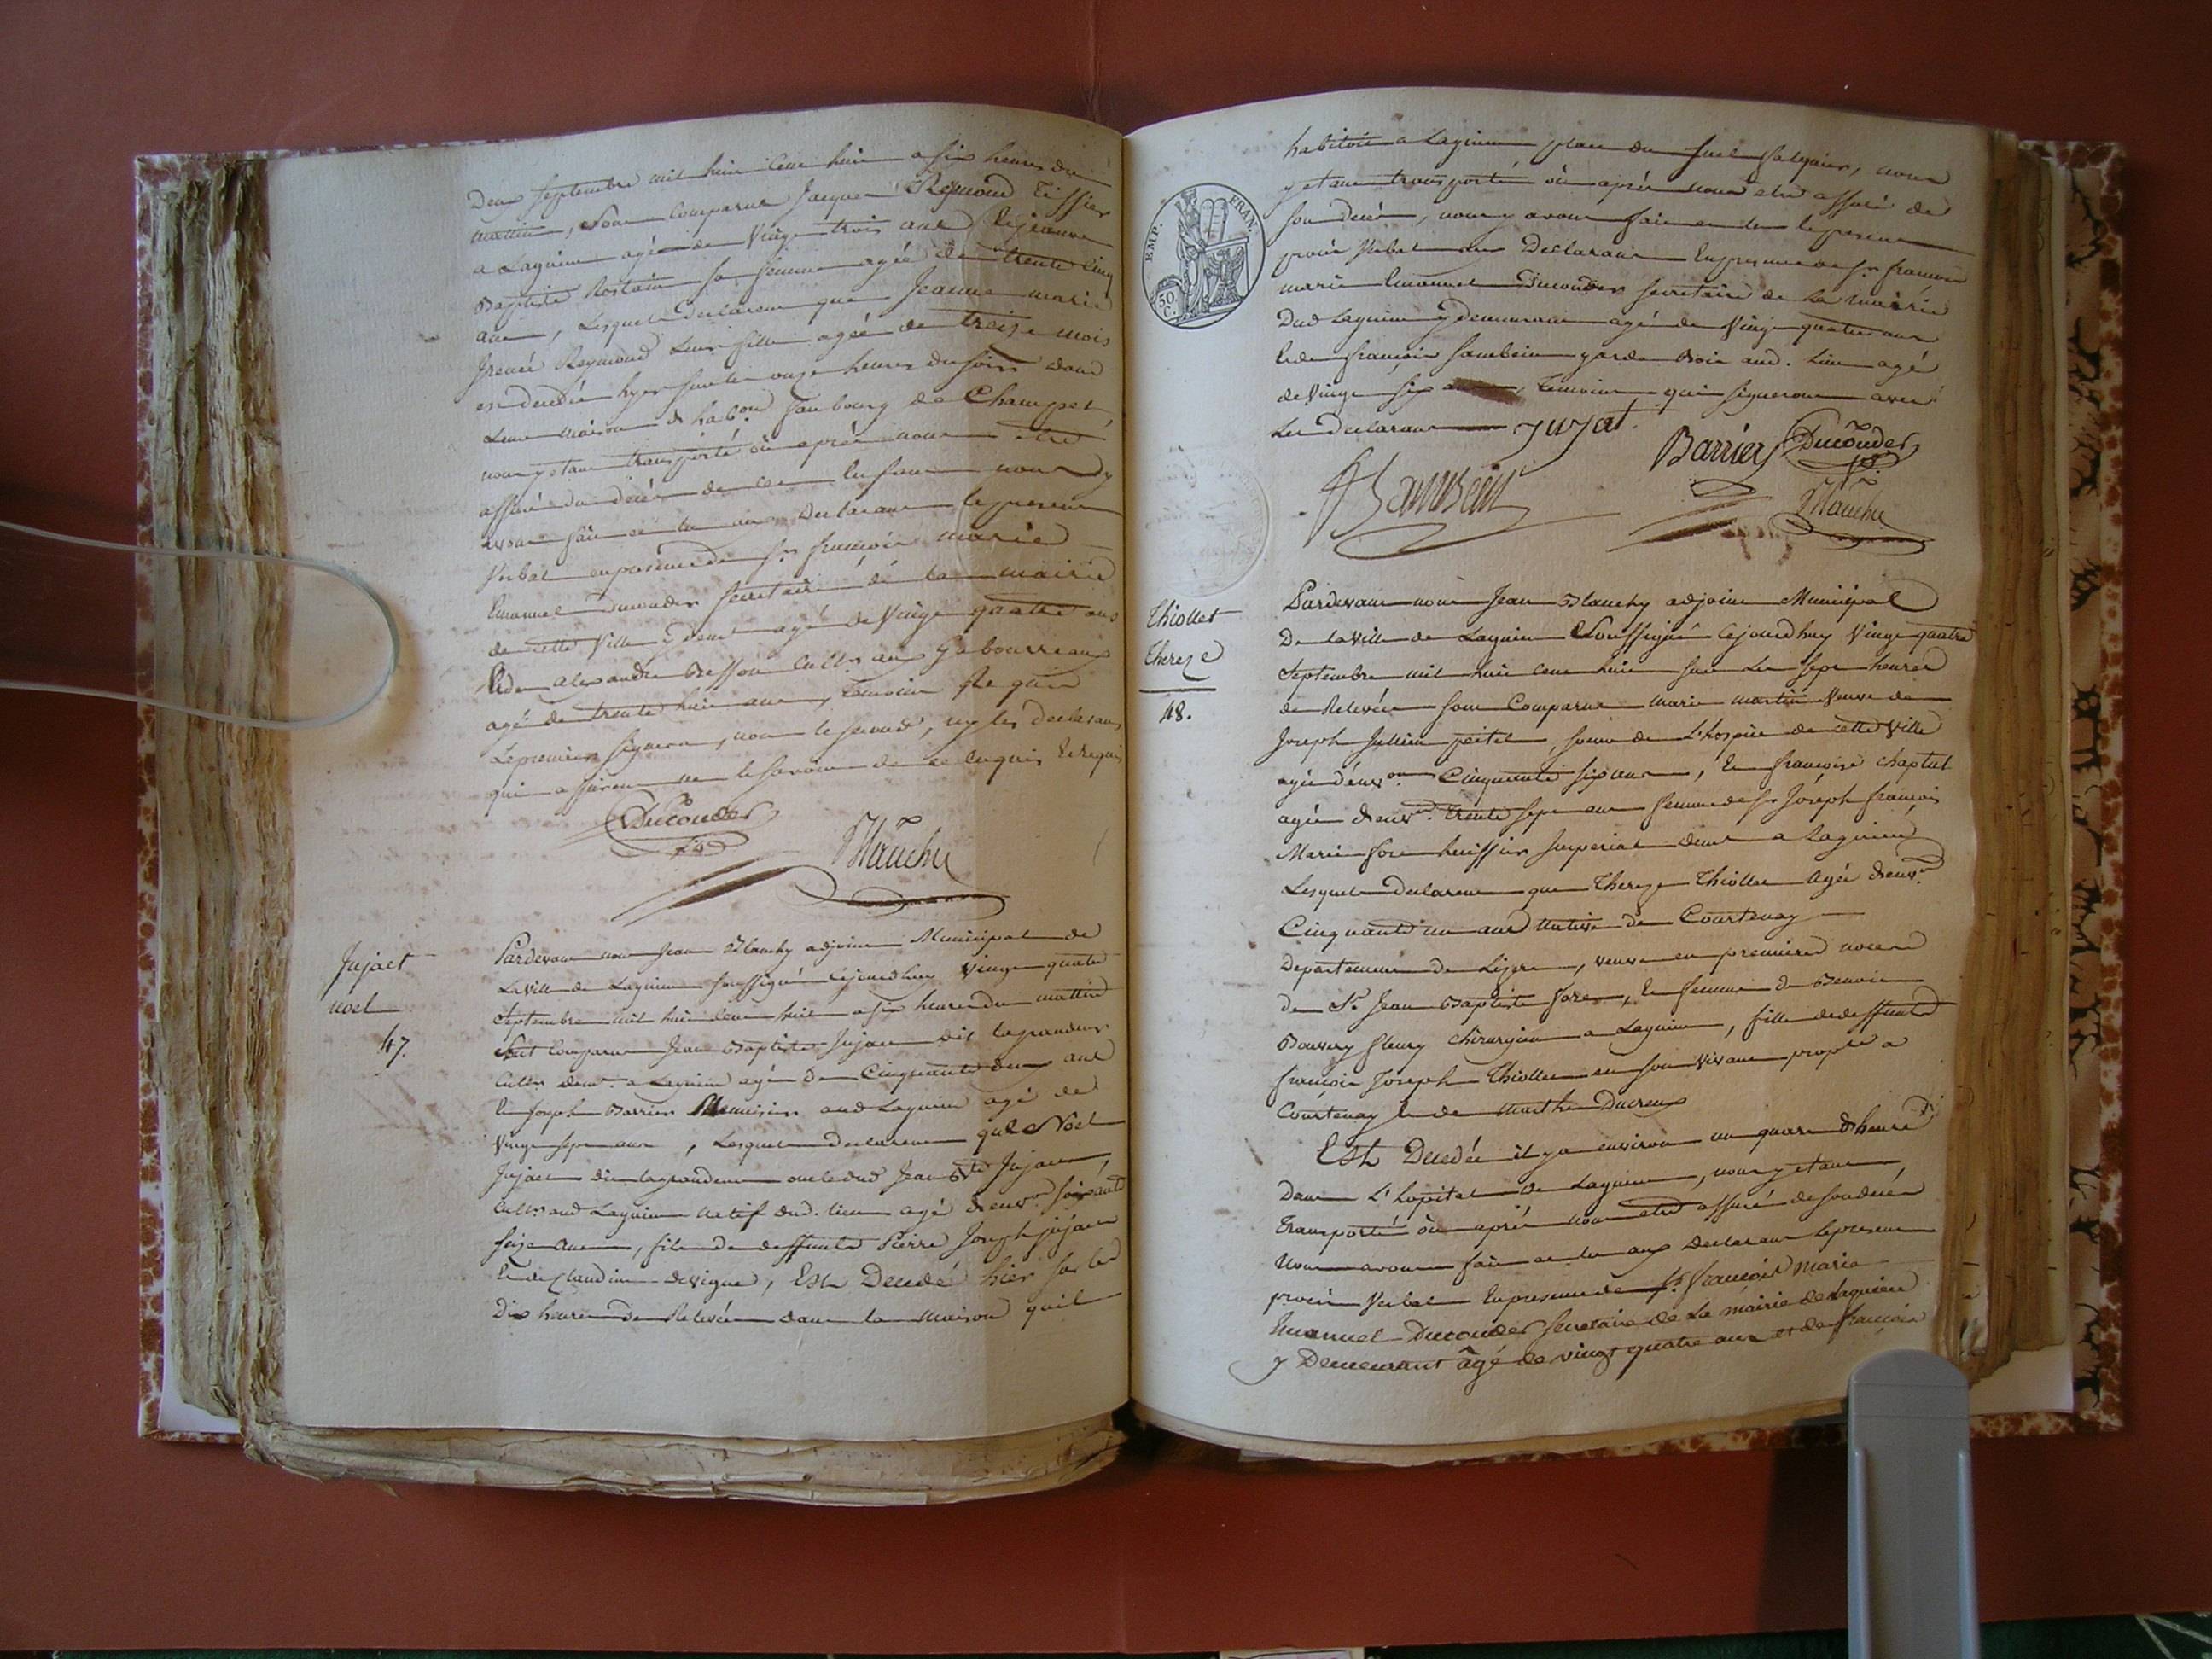 Deux septembre mil huit cent huit a six heures du
mattin, sont comparus Jacques Reymond Tissier
a Lagnieu agé de Vingt trois ans et jeanne
Baptiste Rostain sa femme agée de trente cinq
ans, Lesquels declarent que Jeanne marie
Reymond Leur fille agée de treize mois
est decedée hyer sur les onze heures du soir dans
Leur maison d'hab.on faubourg de Champet
nous y etant transporté où après nous etre
assuré du décès de cet enfant nous y
avons fait acte aux declarans le present
Verbal en presence de sr. francois marie
Emanuel Ducouder secretaire de la mairie
de cette Ville y demt agé de Vingt quatre ans
Et de alexandre Besson cult.r aux Gabourreaux
agé de trente huit ans, temoins Le quel
Le premier signera, non le second, ny les declarans
qui assurent ne le savoir de ce enquis Et requis
Ducouder
Blanchy
Jujaet
noel
47.
Pardevant nous Jean Blanchy adjoint Municipal de
La ville de Lagnieu soussigné cejourdhuy Vingt quatre
Septembre mil huit cent huit a six heures du mattin
Sont comparus Jean Baptiste Jujaet dit lagrandeur
cult.r demt. a Lagnieu agé de Cinquante deux ans
Et Joseph Barrier Menuisier aud Lagnieu agé de
Vingt sept ans, Lesquels declarent que Noel
Jujaet dit lagrandeur oncle dud Jean Bte Jujaet
cult.r aud Lagnieu natif dud. lieu agé d'env.on soixante
seize ans, fils de deffunts Pierre Joseph jujaet
Et de Claudine devigne, Est Decedé hier sur les
Dix heures de Relevée dans la maison quil
habitoit a Lagnieu place du, nous
y etant transporté où après nous etre assuré de
son decès, nous y avons fait acte le present
procès Verbal aux Declarans En presence de sr. francois
marie Emanuel Ducouder secretaire de La mairie
Dud Lagnieu y demeurant agé de Vingt quatre ans
Et de françois sambein garde Bois aud. Lieu agé
de Vingt six, temoins qui signeront avec
Les declarans jujat.
Barrier Ducouder
F Sambein
Blanchy
EMP. FRAN.
50 C.
Thiollet
Thereze
48.
Pardevant nous Jean Blanchy adjoint Municipal
De la Ville de Lagnieu Soussigné cejourdhuy Vingt quatre
Septembre mil huit cent huit sur Les sept heures
de Relevée sont Comparus marie martin Veuve de
Joseph Jullien peitel, soeur de L'hospice de cette Ville
agée d'env.on Cinquante six ans, Et françoise chaptal
agée d'env.on trente sept ans femme de sr Joseph françois
Marie fore huissier Imperial demt a Lagnieu
Lesquels declarent que Thereze Thiollet Agée d'env.on
Cinquante un ans native de Courtenay
Departement de Lizere, veuve en premieres noces
de Sr. Jean Baptiste fore, Et femme de Benoit
Bouvery fleury chirurgien a Lagnieu, fille de deffunts
françois Joseph Thiollet en son vivant propre a
Courtenay Et de Marthe Ducreux
Est Decedée il y a environ un quart d'heure
Dans L'hopital de Lagnieu, nous y etant
transporté où après nous etre assuré de son decès
Nous avons fait acte aux Declarans le present
procès Verbal En presence de sr. francois Marie
Emanuel Ducouder secretaire de La mairie de Lagnieu
y Demeurant âgé de vingt quatre ans et de françois